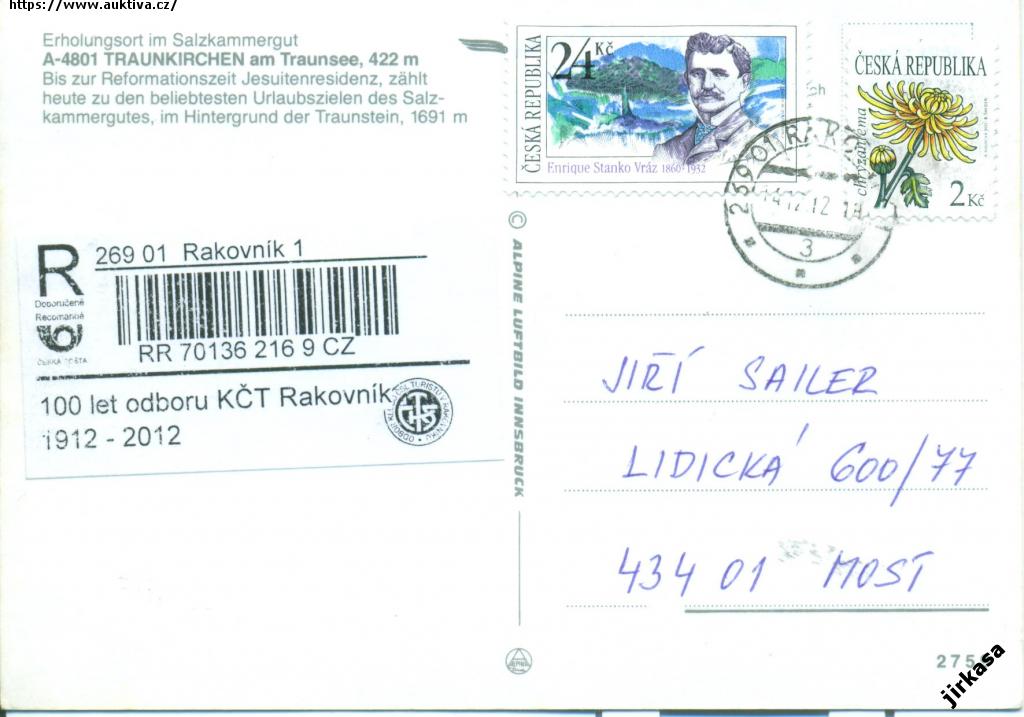 https://www.auktiva.cz/
Erholungsort im Salzkammergut
A-4801 TRAUNKIRCHEN am Traunsee, 422 m
Bis zur Reformationszeit Jesuitenresidenz, zählt
heute zu den beliebtesten Urlaubszielen des Salz-
kammergutes, im Hintergrund der Traunstein, 1691 m
ČESKÁ REPUBLIKA
24 Kč
Enrique Stanko Vráz 1860-1932
ČESKÁ REPUBLIKA
chryzantéma
2 Kč
3
© ALPINE LUFTBILD INNSBRUCK
R
Doporučeně
Recomandé
ČESKÁ POŠTA
269 01 Rakovník 1
RR 70136 216 9 CZ
100 let odboru KČT Rakovník
1912 - 2012
JIŘÍ SAILER
LIDICKÁ 600/77
434 01 MOST
275
jirkasa